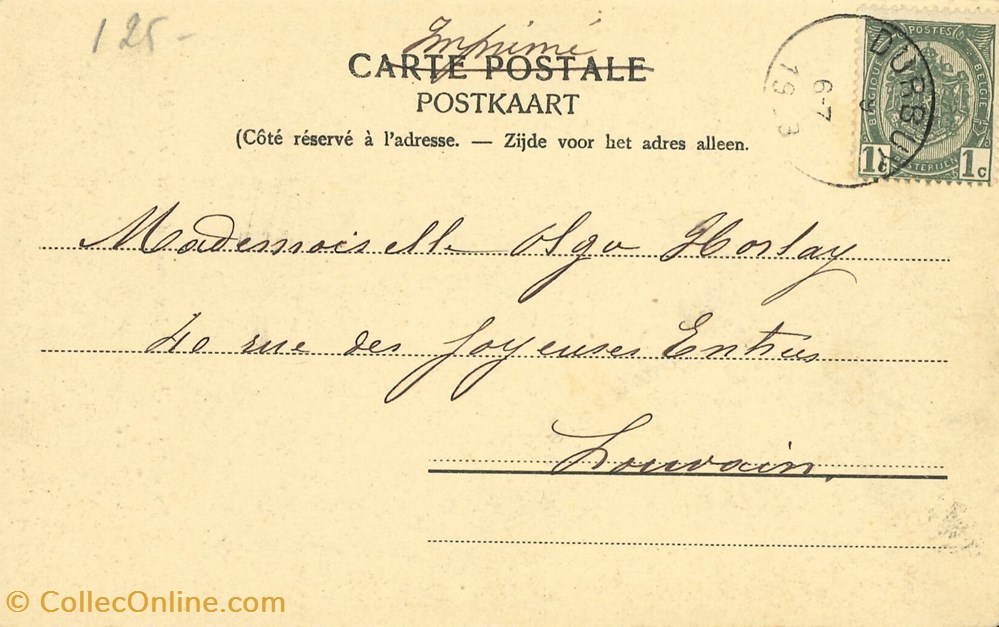 1 25 -
Imprimé
CARTE POSTALE
POSTKAART
(Côté réservé à l'adresse. — Zijde voor het adres alleen.
POSTES
BELGIQUE
BELGIE
POSTERIJEN
1c 1c
DURBUY
6-7
19 3
Mademoiselle Olga Horlay
40 rue des Joyeuses Entrées
Louvain.
© CollecOnline.com